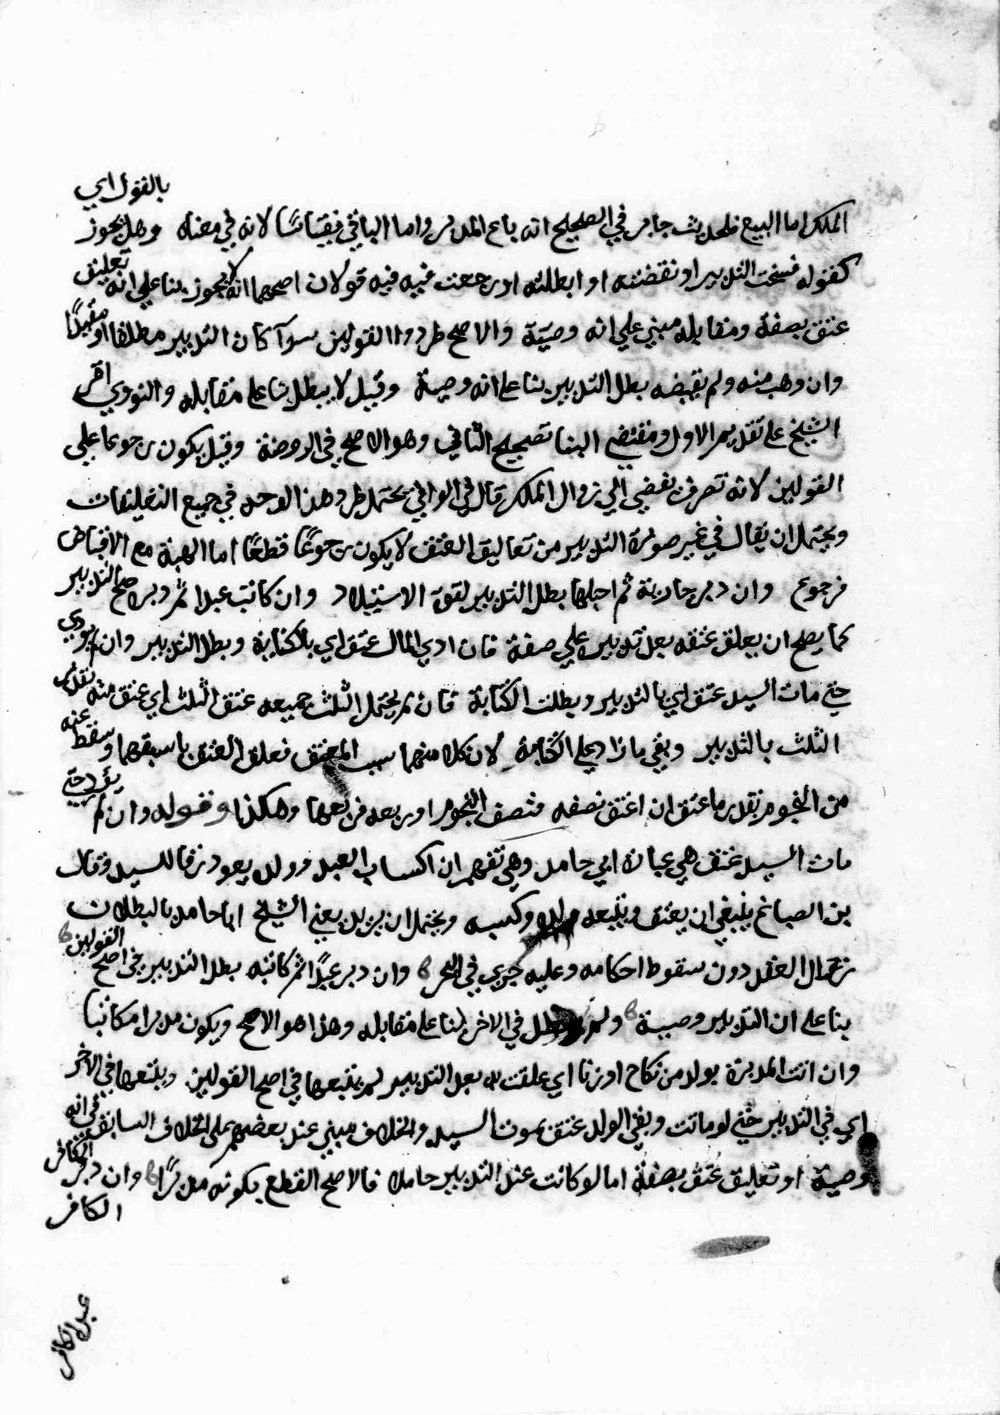 الملك اما البيع فلحديث جابر في الصحيح انه باع المدبر واما الباقي فبقياسًا لانه في معناه وهل يجوز بالقول اي
كقوله فسخت التدبير او نقضته او ابطلته او رجعت فيه فيه قولان اصحهما انه لا يجوز بنا علي انه تعليق
عتق بصفة ومقابله مبني علي انه وصية والاصح طرد القولين سوآ كان التدبير مطلقا او مقيدًا
وان وهب منه ولم يقبضه بطل التدبير بنا علي انه وصية وقيل لا يبطل بنا علي مقابله والنووي اقر
الشيخ علي تقديم الاول ومقتضي البنا تصحيح الثاني وهو الاصح في الروضة وقيل يكون رجوعا علي
القولين لانه تصرف يفضي الي زوال الملك قال في الوافي يحتمل طرد هذا الوجه في جميع التعليقات
ويحتمل ان يقال في غير صورة التدبير من تعاليق العتق لا يكون رجوعًا قطعًا اما الهبة مع الاقباض
فرجوع وان دبر جارية ثم احبلها بطل التدبير لقوة الاستيلاد وان كاتب عبدا ثم دبره صح التدبير
كما يصح ان يعلق عتقه بعد تدبيره علي صفة فان ادي المال عتق اي بالكتابة وبطل التدبير وان لم يودي
حتي مات السيد عتق اي بالتدبير وبطلت الكتابة فان لم يحتمل الثلث جميعه عتق الثلث اي عتق منه بقدر
الثلث بالتدبير وبقي ما زاد علي الكتابة لان كلا منهما سبب العتق فعلق العتق باسبقهما وسقط عنه
من النجوم بقدر ما عتق ان اعتق نصفه فنصف النجوم او ربعه فربعها وهكذا وقوله وان لم يؤد حتي
مات السيد عتق هي عبارة ابي حامد وهي تفهم ان اكساب العبد وولده يعود رقا للسيد وقال
بن الصباغ ينبغي ان يعتق ويتبعه ولده وكسبه ويحتمل ان يريد يعني الشيخ ابا حامد بالبطلان
زوال العقد دون سقوط احكامه وعليه جري في البحر وان دبر عبدًا ثم كاتبه بطل التدبير في اصح القولين
بنا علي ان التدبير وصية ولم يبطل في الاخر بنا علي مقابله وهذا هو الاصح ويكون مدبرا مكاتبا
وان اتت المدبرة بولد من نكاح او زنا اي علقت به بعد التدبير لم يتبعها في اصح القولين ويتبعها في الآخر
اي في التدبير حتي لو ماتت وبقي الولد عتق بموت السيد والخلاف مبني عند بعضهم علي الخلاف السابق في انه
وصية او تعليق عتق بصفة اما لو كانت عند التدبير حاملا فالاصح القطع بكونه مدبرًا وان دبر الكافر
الكافر
عبد الكافر